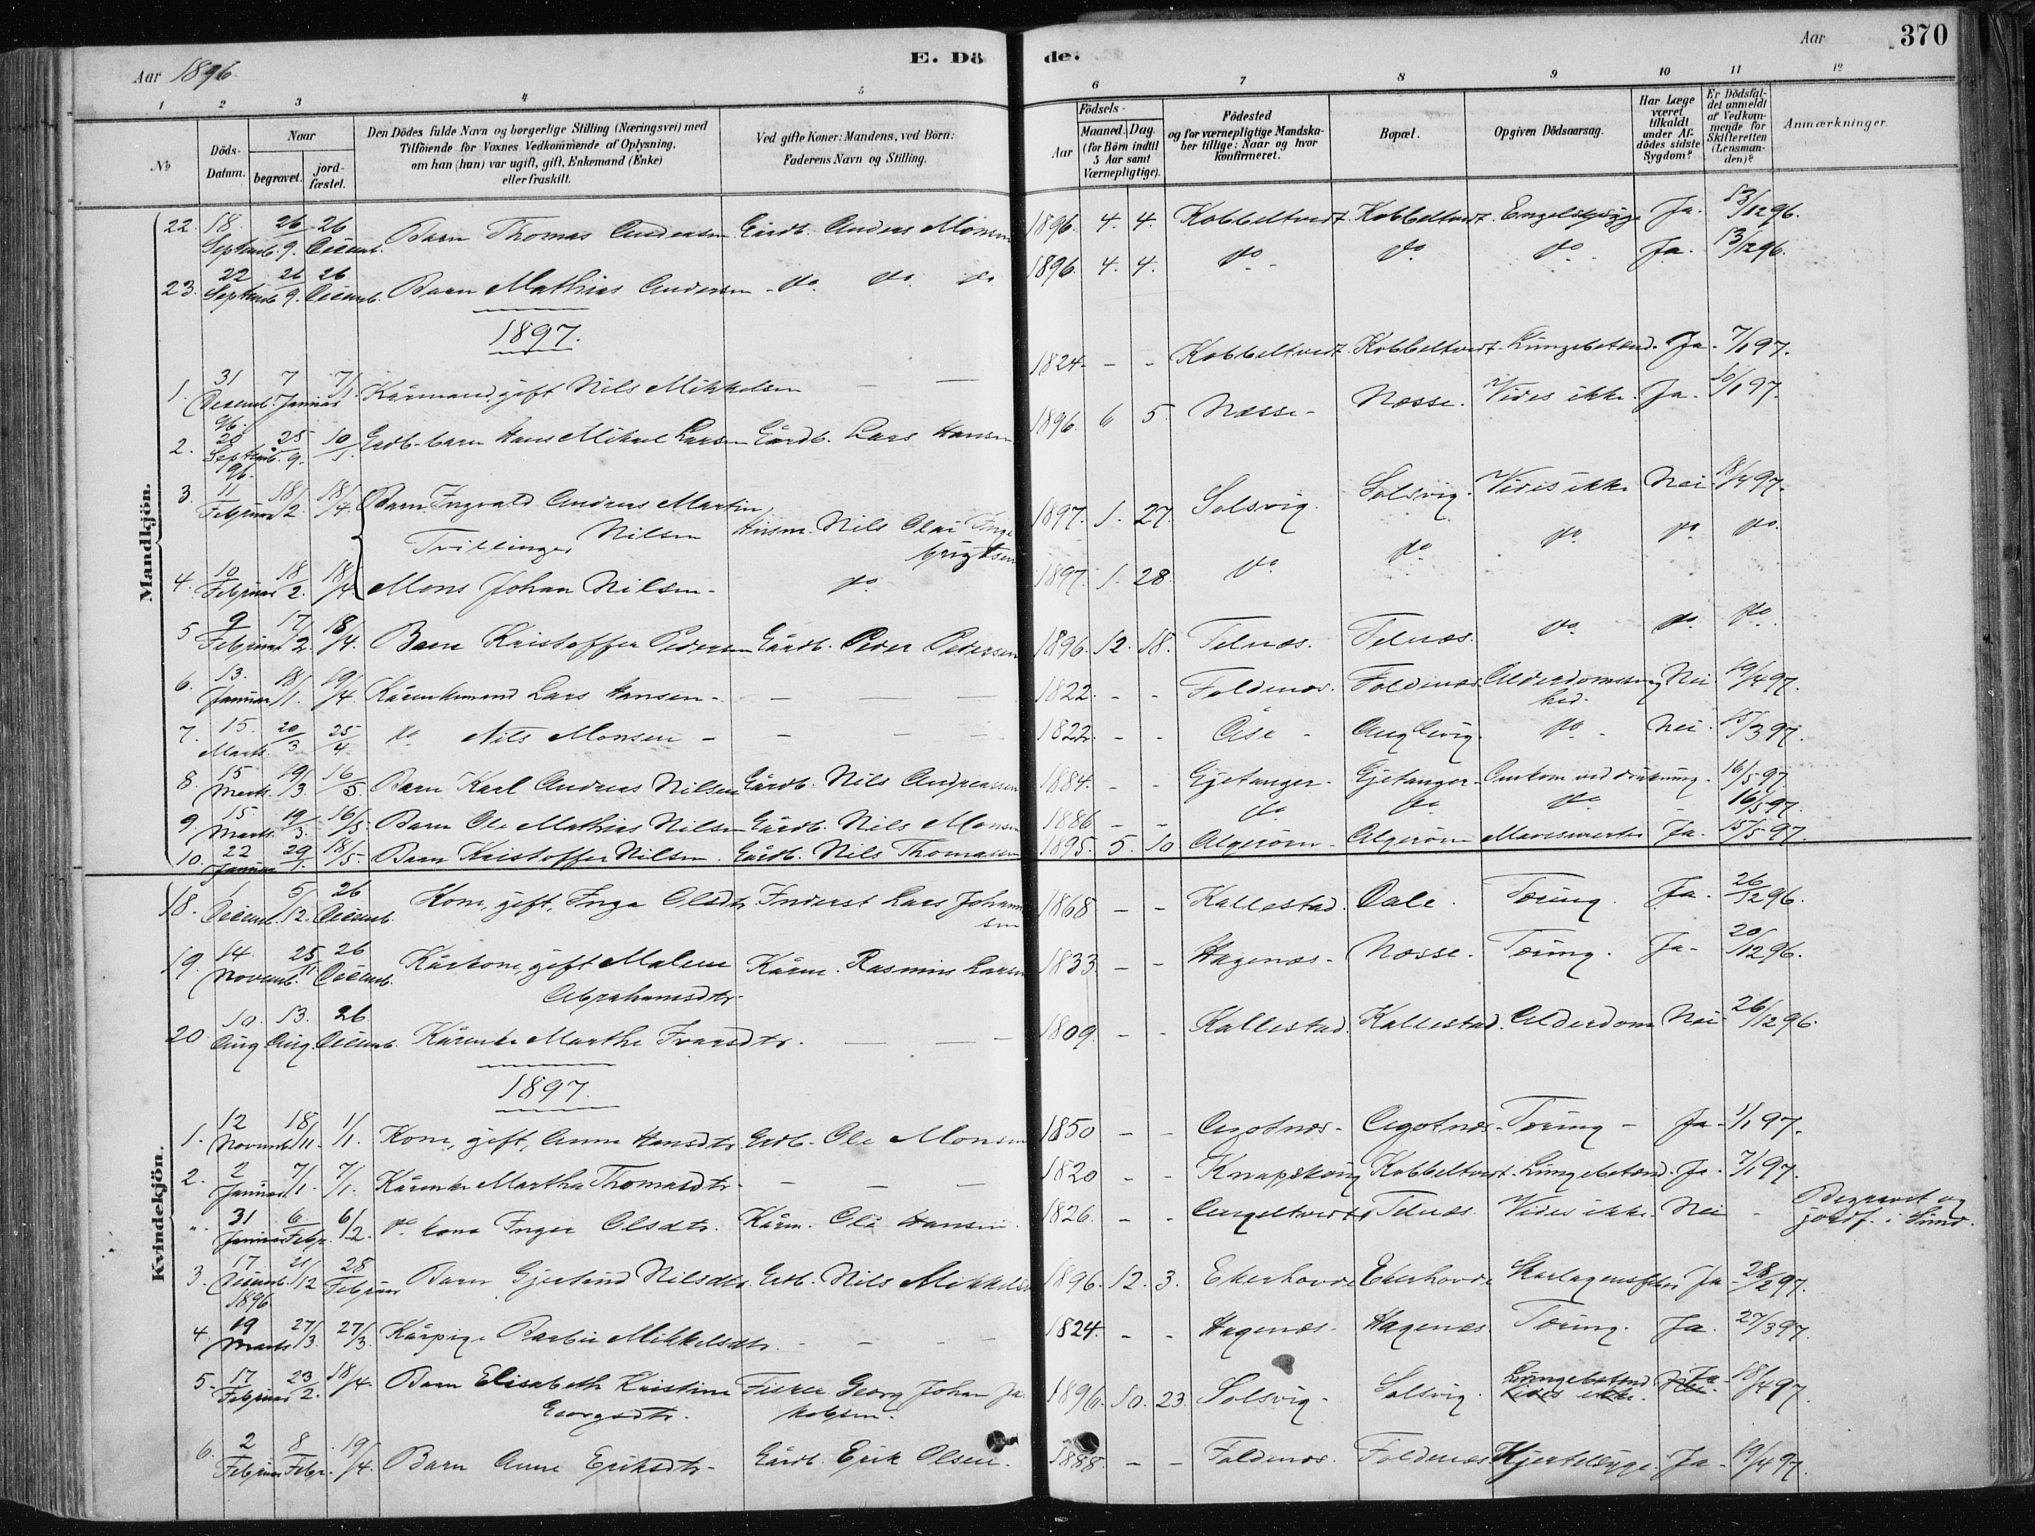 Aar 1896.
E. Döde.
Aar
370
1 2 3 4 5 6 7 8 9 10 11 12
No
Döds-Datum.
Naar
begravet.
jord-fæstet.
Den Dödes fulde Navn og borgerlige Stilling (Næringsvei) med
Tilföiende for Voxnes Vedkommende af Oplysning,
om han (hun) var ugift, gift, Enkemand (Enke)
eller fraskilt.
Ved gifte Koner: Mandens, ved Börn:
Faderens Navn og Stilling.
Födsels-
Aar
Maaned. Dag.
(for Börn indtil
5 Aar samt
Værnepligtige).
Födested
og for værnepligtige Mandska-
ber tillige: Naar og hvor
konfirmeret.
Bopæl.
Opgiven Dödsaarsag.
Har Læge
været
tilkaldt
under Af-
dödes sidste
Sygdom?
Er Dödsfal-
det anmeldt
af Vedkom-
mende for
Skifteretten
(Lensman-
den)?
Anmærkninger.
Mandkjön.
22. 18 Septemb. 26/9. 26 Decemb. Barn Thomas Andersen Gårdb. Anders Monsen 1896. 4. 4. Kobbeltvedt. Kobbeltvedt. Engelsksyge Ja. 13/12 96.
23. 22 Septemb. 26/9. 26 Decemb. Barn Mathias Andersen do. do. do 1896. 4. 4. do do do Ja. 13/12 96.
1897.
1. 31 Decemb. 96. 7 Januar 7/1 Kårmand, gift Nils Mikkelsen — — 1824. - - Kobbeltvedt. Kobbeltvedt. Lungebetænd. Ja. 7/1 97.
2. 20 Septemb. 96. 25/9. 10/1 Grdb. barn Hans Mikael Larsen Gårdb. Lars Hansen 1896. 6 5. Næsse. Næsse. Vides ikke. Ja. 10/1 97.
3. 11 Februar 18/2. 18/4. Barn Ingvald Andreas Martin Nilsen Husm. Nils Olai Ingebrigtsen 1897. 1. 27. Solsvig. Solsvig. Vides ikke Nei 18/4 97.
Tvillinger
4. 10 Februar 18/2. 18/4. Mons Johan Nilsen do. 1897. 1. 28. do do do do do.
5 9 Februar 17/2. 18/4. Barn Kristoffer Pedersen Gårdb. Peder Pedersen 1896. 12. 18. Telnæs. Telnæs. do do do
6. 13. Januar 18/1. 19/4 Kårenkemand Lars Hansen - — — 1822. - - Foldenæs. Foldenæs. Alderdomssvaghed. Nei 19/4 97.
7. 15. Marts 20/3. 25/4. do Nils Monsen - — — 1822. - - Åse - do Nei 15/3 97.
8. 15 Marts 19/3. 16/5 Barn Karl Andreas Nilsen Gårdb. Nils Andreassen 1884. - - Gjetanger. Gjetanger. Omkom ved drukning. 16/5 97
9. 15 Marts 19/3. 16/5. Barn Ole Mathias Nilsen Gårdb. Nils Monsen 1886 - - do do do - 16/5 97.
10. 22 Januar 29/1. 18/5. Barn Kristoffer Nilsen. Gårdb. Nils Thomassen 1895. 5. 10 Algerøen. Algerøen Ja. 15/5 97.
Kvindekjön.
18. 1 Decemb. 5/12. 26 Decemb. Kone, gift, Inga Olsdtr Inderst Lars Johannesen 1868 - - Kallestad. Dale. Tæring. Ja. 26/12 96.
19. 14 Novemb. 25/11 26 Decemb. Kårkone, gift Malene Abrahamsdtr. Kårm. Rasmus Larsen 1833 - - Hagenæs. Næsse. Tæring. Ja. 20/12 96.
20 10. Aug. 13. Aug. 26 Decemb. Kårenke Marthe Ivarsdtr. — — 1809. - - Kallestad. Kallestad. Alderdom Nei 26/12 96.
1897.
1. 12 Novemb. 18/11. 1/1. Kone, gift, Anna Hansdtr Grdb. Ole Monsen 1850 - - Agotnæs. Agotnæs. Tæring - Ja. 1/1 97.
2. 2 Januar 7/1. 7/1. Kårenke Martha Thomasdtr - — — 1820 - - Knapskoug Kobbeltvedt. Lungebetænd. Ja. 7/1 97.
" 31 Januar 6. Febr. 6/2. do kone Inger Olsdtr. Kårm. Ole Hansen 1826. - - Angeltvedt Telnæs. Vides ikke. Nei - Begravet og jordf. i Sund.
3. 17 Decemb. 1896 21/12 28 Februar Barn Gjertrud Nilsdtr. Grdb. Nils Mikkelsen 1896. 12. 3. Ekerhovde Ekerhovde Skarlagensfeber Ja 28/2 97.
4. 19 Marts 27/3. 27/3 Kårpige Barbro Mikkelsdtr. — — 1824. - - Hagenæs. Hagenæs. Tæring. Ja. 27/3 97.
5. 17 Februar 23/2. 18/4. Barn Elisabeth Kristine Georgsdtr. Fisker Georg Johan Jakobsen. 1896. 10. 23. Solsvig. Solsvig. Lungebetænd Vides ikke. Ja Nei. 18/4 97.
6. 2 Februar 8 Febr. 19/4. Barn Anne Eriksdtr. Gårdb. Erik Olsen. 1888. - - Foldenæs. Foldenæs Hjertesyge. Ja - 19/4 97.